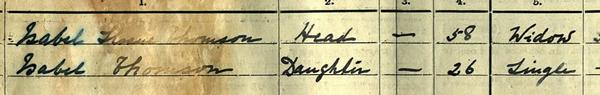 1. 2. 3. 4. 5.
Isabel Thomson Head — 58 Widow
Isabel Thomson Daughter — 26 Single